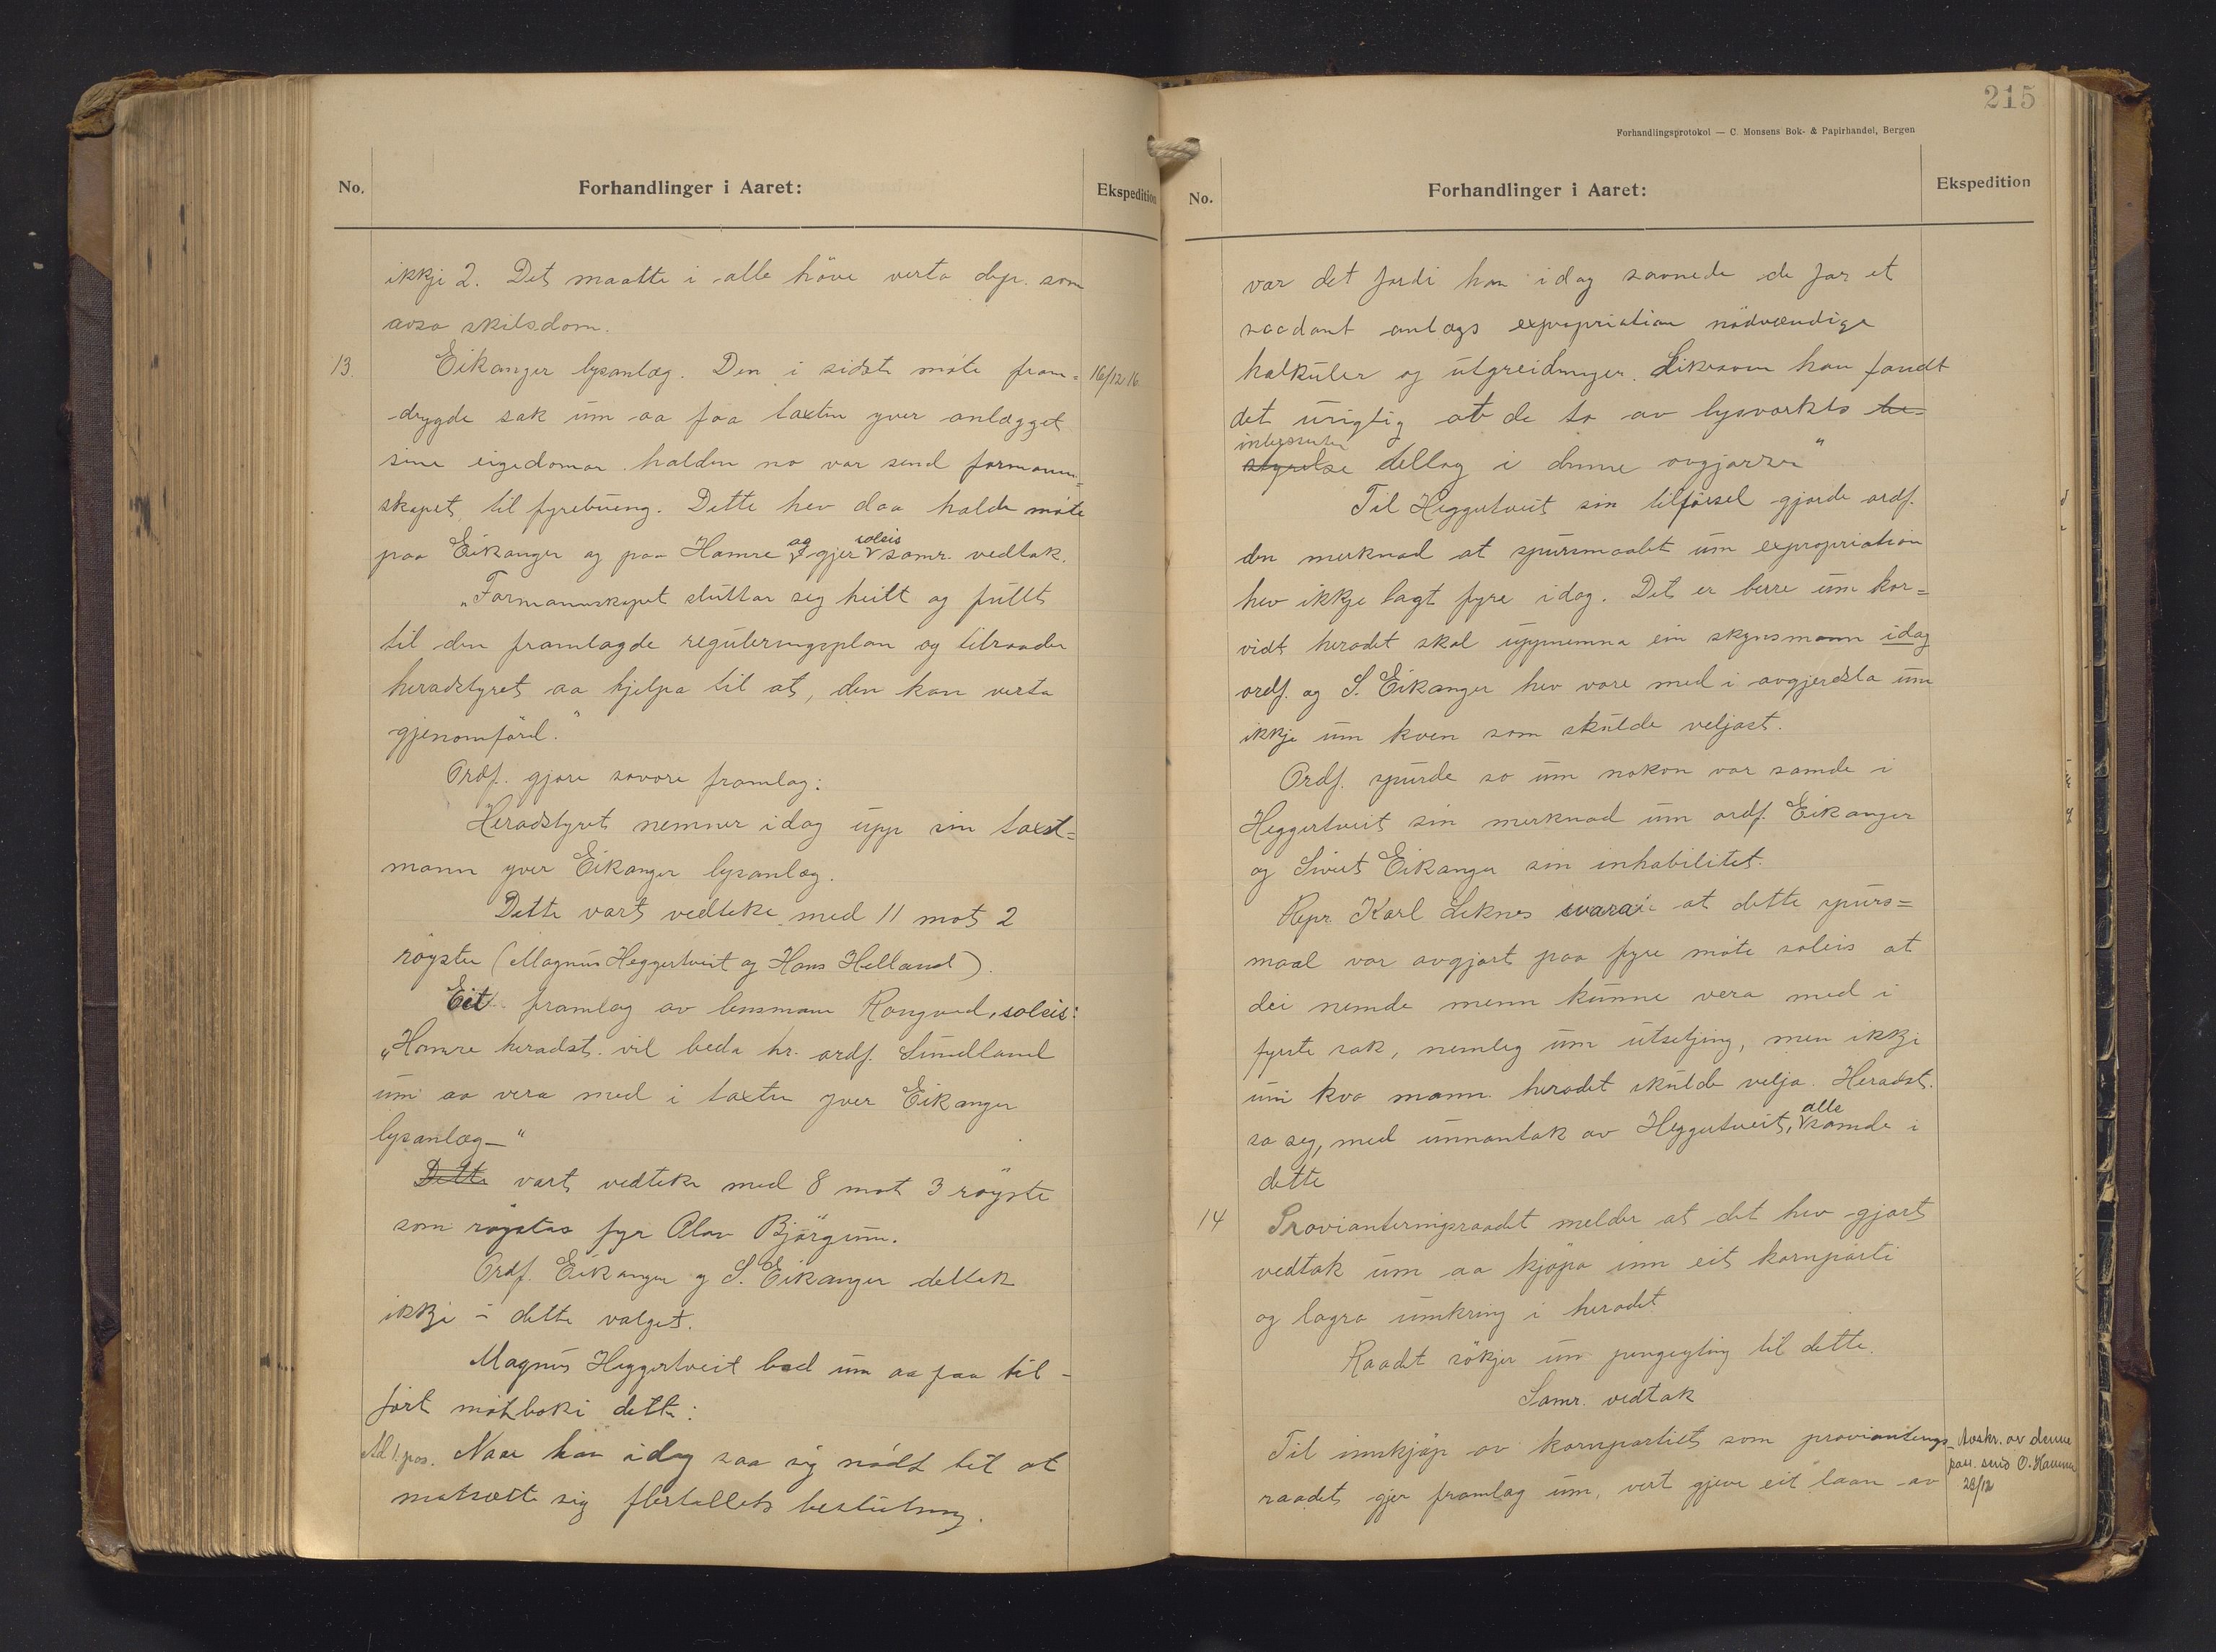 No.
Forhandlinger i Aaret:
Ekspedition
ikkje 2. Det maatte i alle höve verta dep. som
avsa skilsdom.
13. Eikanger lysanlæg. Den i sidste möte fram= 16/12 16
drygde sak um aa faa taxten yver anlægget
sine eigedomar halden no var send formann=
skapet til fyrebuing. Dette hev daa halde möte
paa Eikanger og paa Hamre og gjer soleis samr. vedtak.
„Formannskapet sluttar seg heilt og fullt
til den framlagde reguleringsplan og tilraader
heradstyret aa hjelpa til at, den kan verta
gjenomförd."
Ordf. gjore savore framlag:
Heradstyret nemner idag upp sin taxst=
mann yver Eikanger lysanlæg.
Dette vart vedteke med 11 mot 2
röyster (Magnus Heggertveit og Hans Helland).
Eit framlag av lensmann Rongved, soleis:
„Hamre heradst. vil beda hr. ordf. Sundland
um aa vera med i taxten yver Eikanger
lysanlæg—"
Dette vart vedteke med 8 mot 3 röyste
som röystas fyr Olav Björgum.
Ordf. Eikanger og S. Eikanger deltok
ikkje i dette valget.
Magnus Heggertveit bad um aa faa til-
fört möteboki dette:
Ad 1. pos. Naar han idag saa sig nödt til at
motsætte sig flertallets beslutning.
215
Forhandlingsprotokol — C. Monsens Bok- & Papirhandel, Bergen
No.
Forhandlinger i Aaret:
Ekspedition
var det fordi han idag savnede de for et
saadant anlægs expropriation nödvændige
kalkuler og utgreidninger. Likesom han fandt
det urigtig at de to av lysværkts be=
interessenter
styrelse deltog i denne avgjörelse"
Til Heggertveit sin tilförsel gjorde ordf.
den merknad at spursmaalet um expropriation
hev ikkje lagt fyre idag. Det er berre um kor=
vidt heradet skal uppnemna ein skynsmann idag
ordf. og S. Eikanger hev vore med i avgjerdsla um
ikkje um kven som skulde veljast.
Ordf. spurde so um nokon var samde i
Heggertveit sin merknad um ordf. Eikanger
og Sivert Eikanger sin inhabilitet.
Repr. Karl Leknes svara at dette spurs=
maal var avgjort paa fyre möte soleis at
dei nemde menn kunne vera med i
fyrste sak, nemleg um utsetjing, men ikkje
um kva mann heradet skulde velja. Heradst.
sa seg, med unnantak av Heggertveit, alle samde i
dette
14 Provianteringsraadet melder at det hev gjort
vedtak um aa kjöpa inn eit kornparti
og lagra umkring i heradet
Raadet sökjer um pengeyting til dette.
Samr. vedtak
Til innkjöp av kornpartiet som provianterings-
raadet gjer framlag um, vert gjeve eit laan av
Avskr. av denne
sak. send O. Hamre
28/12